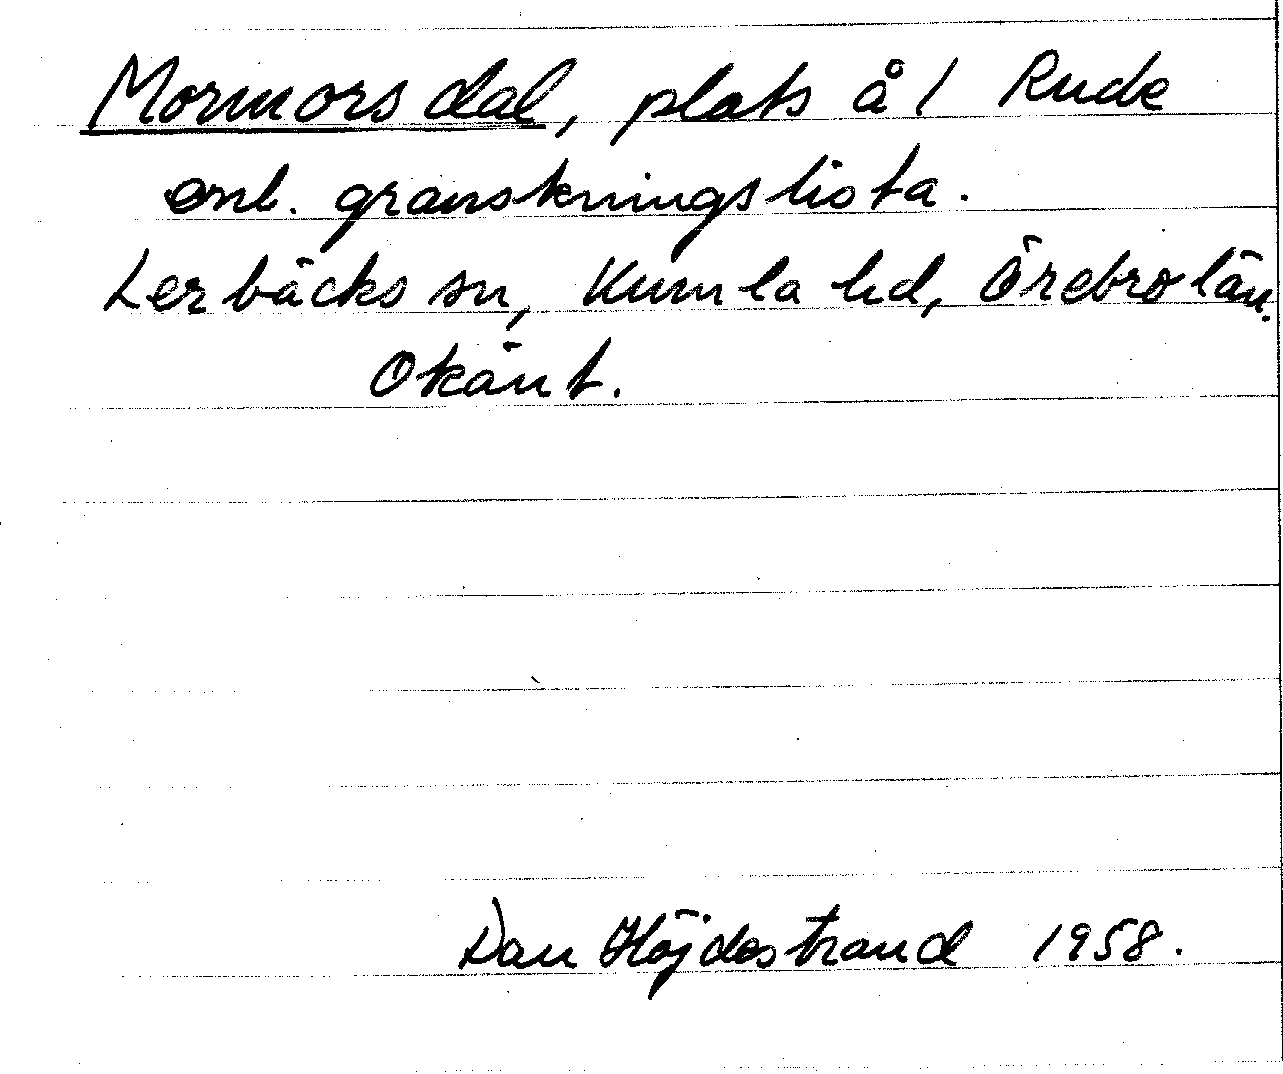 Mormorsdal, plats å 1 Rude
enl. granskningslista.
Lerbäcks sn, Kumla hd, Örebro län.
Okänt.
Dan Höjdestrand 1958.